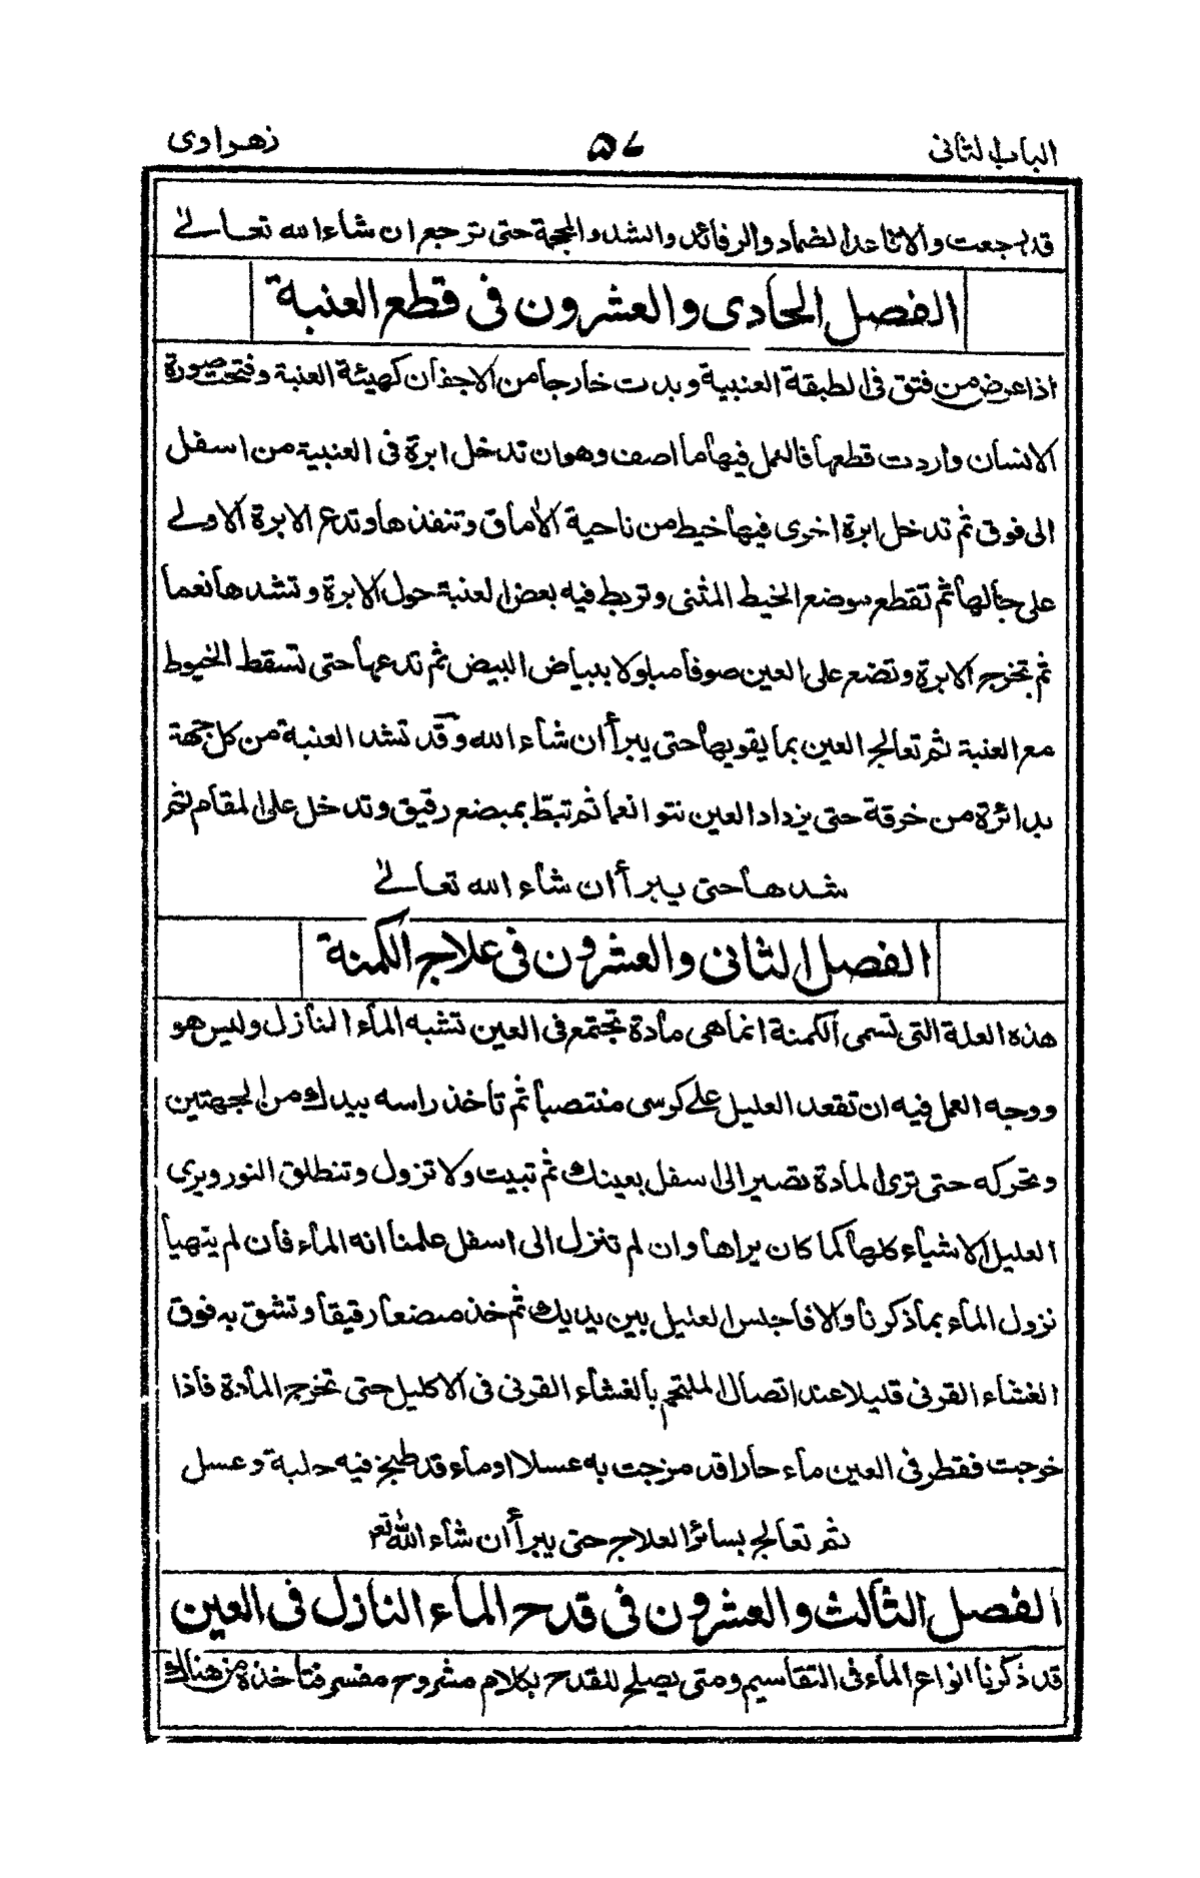 الباب الثانی
۵۷
زهراوی
قد رجعت والا فاعد الضماد والرفائد والشد والمحجمة حتی ترجع ان شاء الله تعالیٰ
الفصل الحادی والعشرون فی قطع العنبة
اذا عرض من فتق فی الطبقة العنبية وبدت خارجا من الاجفان كهيئة العنبة وقبحت صورة
الانسان واردت قطعها فالعمل فيها ما اصف وهو ان تدخل ابرة فی العنبية من اسفل
الی فوق ثم تدخل ابرة اخری فيها خيط من ناحية الاماق وتنفذها وتدع الابرة الاولے
علی حالها ثم تقطع موضع الخيط المثنی وتربط فيه بعض العنبة حول الابرة وتشدها نعما
ثم تخرج الابرة وتضع علی العين صوفا مبلولا ببياض البيض ثم تدعها حتی تسقط الخيوط
مع العنبة ثم تعالج العين بما يقويها حتی يبرأ ان شاء الله وقد تشد العنبة من كل جهة
بدائرة من خرقة حتی يزداد العين نتوا نعما ثم تبطّ بمبضع رقيق وتدخل علی المقام ثم
شدها حتی يبرأ ان شاء الله تعالیٰ
الفصل الثانی والعشرون فی علاج الكمنة
هذه العلة التی تسمی الكمنة انما هی مادة تجتمع فی العين تشبه الماء النازل وليس هو
ووجه العمل فيه ان تقعد العليل علے كرسی منتصبا ثم تاخذ راسه بيدك من الجهتين
وتحركه حتی تری المادة تصير الی اسفل بعينك ثم تبيت ولا تزول وتنطلق النور ويری
العليل الاشياء كلها كما كان يراها وان لم تنزل الی اسفل علمنا انه الماء فان لم يتهيأ
نزول الماء بما ذكرنا والا فاجلس العليل بين يديك ثم خذ مبضعا رقيقا وتشق به فوق
الغشاء القرنی قليلا عند اتصال الملتحم بالغشاء القرنی فی الاكليل حتی تخرج المادة فاذا
خرجت فقطر فی العين ماء حارا قد مزجت به عسلا او ماء قد طبخ فيه حلبة وعسل
ثم تعالج بسائر العلاج حتی يبرأ ان شاء الله تع
الفصل الثالث والعشرون فی قدح الماء النازل فی العين
قد ذكرنا انواع الماء فی التقاسيم ومتی يصلح للقدح بكلام مشروح مفسر فتاخذه من هناك